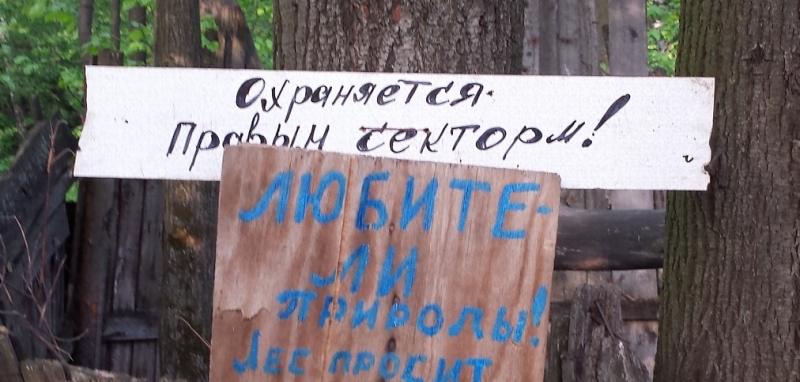 Охраняется
Правым секторм!
ЛЮБИТЕ-
ЛИ
ПРИРОДЫ!
ЛЕС ПРОСИТ